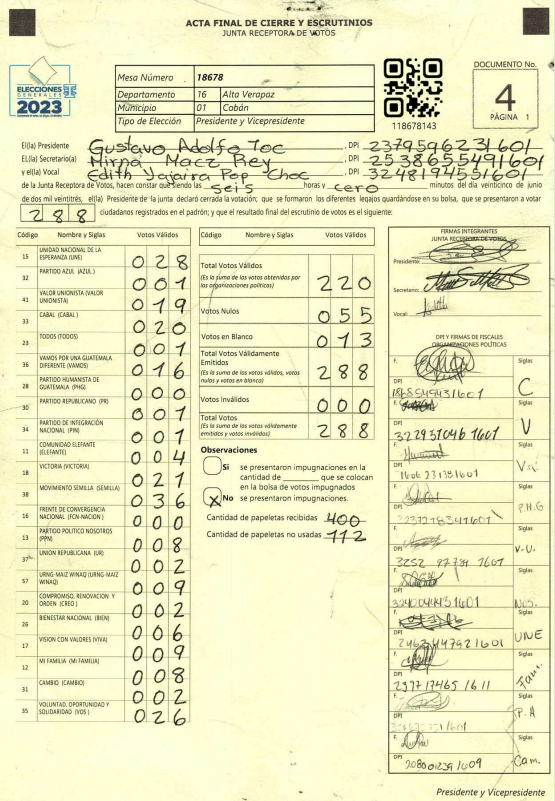 ACTA FINAL DE CIERRE Y ESCRUTINIOS
JUNTA RECEPTORA DE VOTOS
ELECCIONES
GENERALES
2023
Mesa Número 18678
Departamento 16 Alta Verapaz
Municipio 01 Cobán
Tipo de Elección Presidente y Vicepresidente
118678143
DOCUMENTO No.
4
PÁGINA 1
El(a) Presidente Gustavo Adolfo Toc, DPI 2379596231601
EL(la) Secretario(a) Mirna Macz Rey, DPI 2538655491601
y el(la) Vocal Edith Yajaira Pop Choc, DPI 3248194551601
de la Junta Receptora de Votos, hacen constar que siendo las seis horas y cero minutos del día veinticinco de junio
de dos mil veintitrés, el(la) Presidente de la junta declaró cerrada la votación; que se formaron los diferentes legajos guardándose en su bolsa, que se presentaron a votar
288 ciudadanos registrados en el padrón; y que el resultado final del escrutinio de votos es el siguiente:
Código Nombre y Siglas Votos Válidos
15 UNIDAD NACIONAL DE LA ESPERANZA (UNE) 028
32 PARTIDO AZUL (AZUL) 001
41 VALOR UNIONISTA (VALOR UNIONISTA) 019
33 CABAL (CABAL) 020
23 TODOS (TODOS) 001
36 VAMOS POR UNA GUATEMALA DIFERENTE (VAMOS) 016
28 PARTIDO HUMANISTA DE GUATEMALA (PHG) 000
30 PARTIDO REPUBLICANO (PR) 001
34 PARTIDO DE INTEGRACIÓN NACIONAL (PIN) 001
11 COMUNIDAD ELEFANTE (ELEFANTE) 004
18 VICTORIA (VICTORIA) 021
38 MOVIMIENTO SEMILLA (SEMILLA) 036
16 FRENTE DE CONVERGENCIA NACIONAL (FCN-NACION) 000
13 PARTIDO POLITICO NOSOTROS (PPN) 008
37 UNION REPUBLICANA (UR) 002
57 URNG-MAIZ WINAQ (URNG-MAIZ WINAQ) 009
20 COMPROMISO, RENOVACION Y ORDEN (CREO) 002
26 BIENESTAR NACIONAL (BIEN) 006
17 VISION CON VALORES (VIVA) 009
12 MI FAMILIA (MI FAMILIA) 008
31 CAMBIO (CAMBIO) 002
35 VOLUNTAD, OPORTUNIDAD Y SOLIDARIDAD (VOS) 026
Nombre y Siglas Votos Válidos
Total Votos Válidos
(Es la suma de los votos obtenidos por las organizaciones políticas) 220
Votos Nulos 055
Votos en Blanco 013
Total Votos Válidamente Emitidos
(Es la suma de los votos válidos, votos nulos y votos en blanco) 288
Votos Inválidos 000
Total Votos
(Es la suma de los votos válidamente emitidos y votos inválidos) 288
Observaciones
Si se presentaron impugnaciones en la cantidad de ______ que se colocan en la bolsa de votos impugnados
X No se presentaron impugnaciones.
Cantidad de papeletas recibidas 400
Cantidad de papeletas no usadas 112
FIRMAS INTEGRANTES
JUNTA RECEPTORA DE VOTOS
Presidente:
Secretario:
Vocal:
DPI Y FIRMAS DE FISCALES
ORGANIZACIONES POLÍTICAS
F. Siglas
DPI C
F. Siglas
DPI V
Siglas
DPI
Siglas
DPI P.H.G
Siglas
DPI V.U.
Siglas
DPI Nos.
Siglas
DPI UNE
Siglas
DPI Fam.
Siglas
DPI P.A
F. Siglas
DPI Cam.
Presidente y Vicepresidente